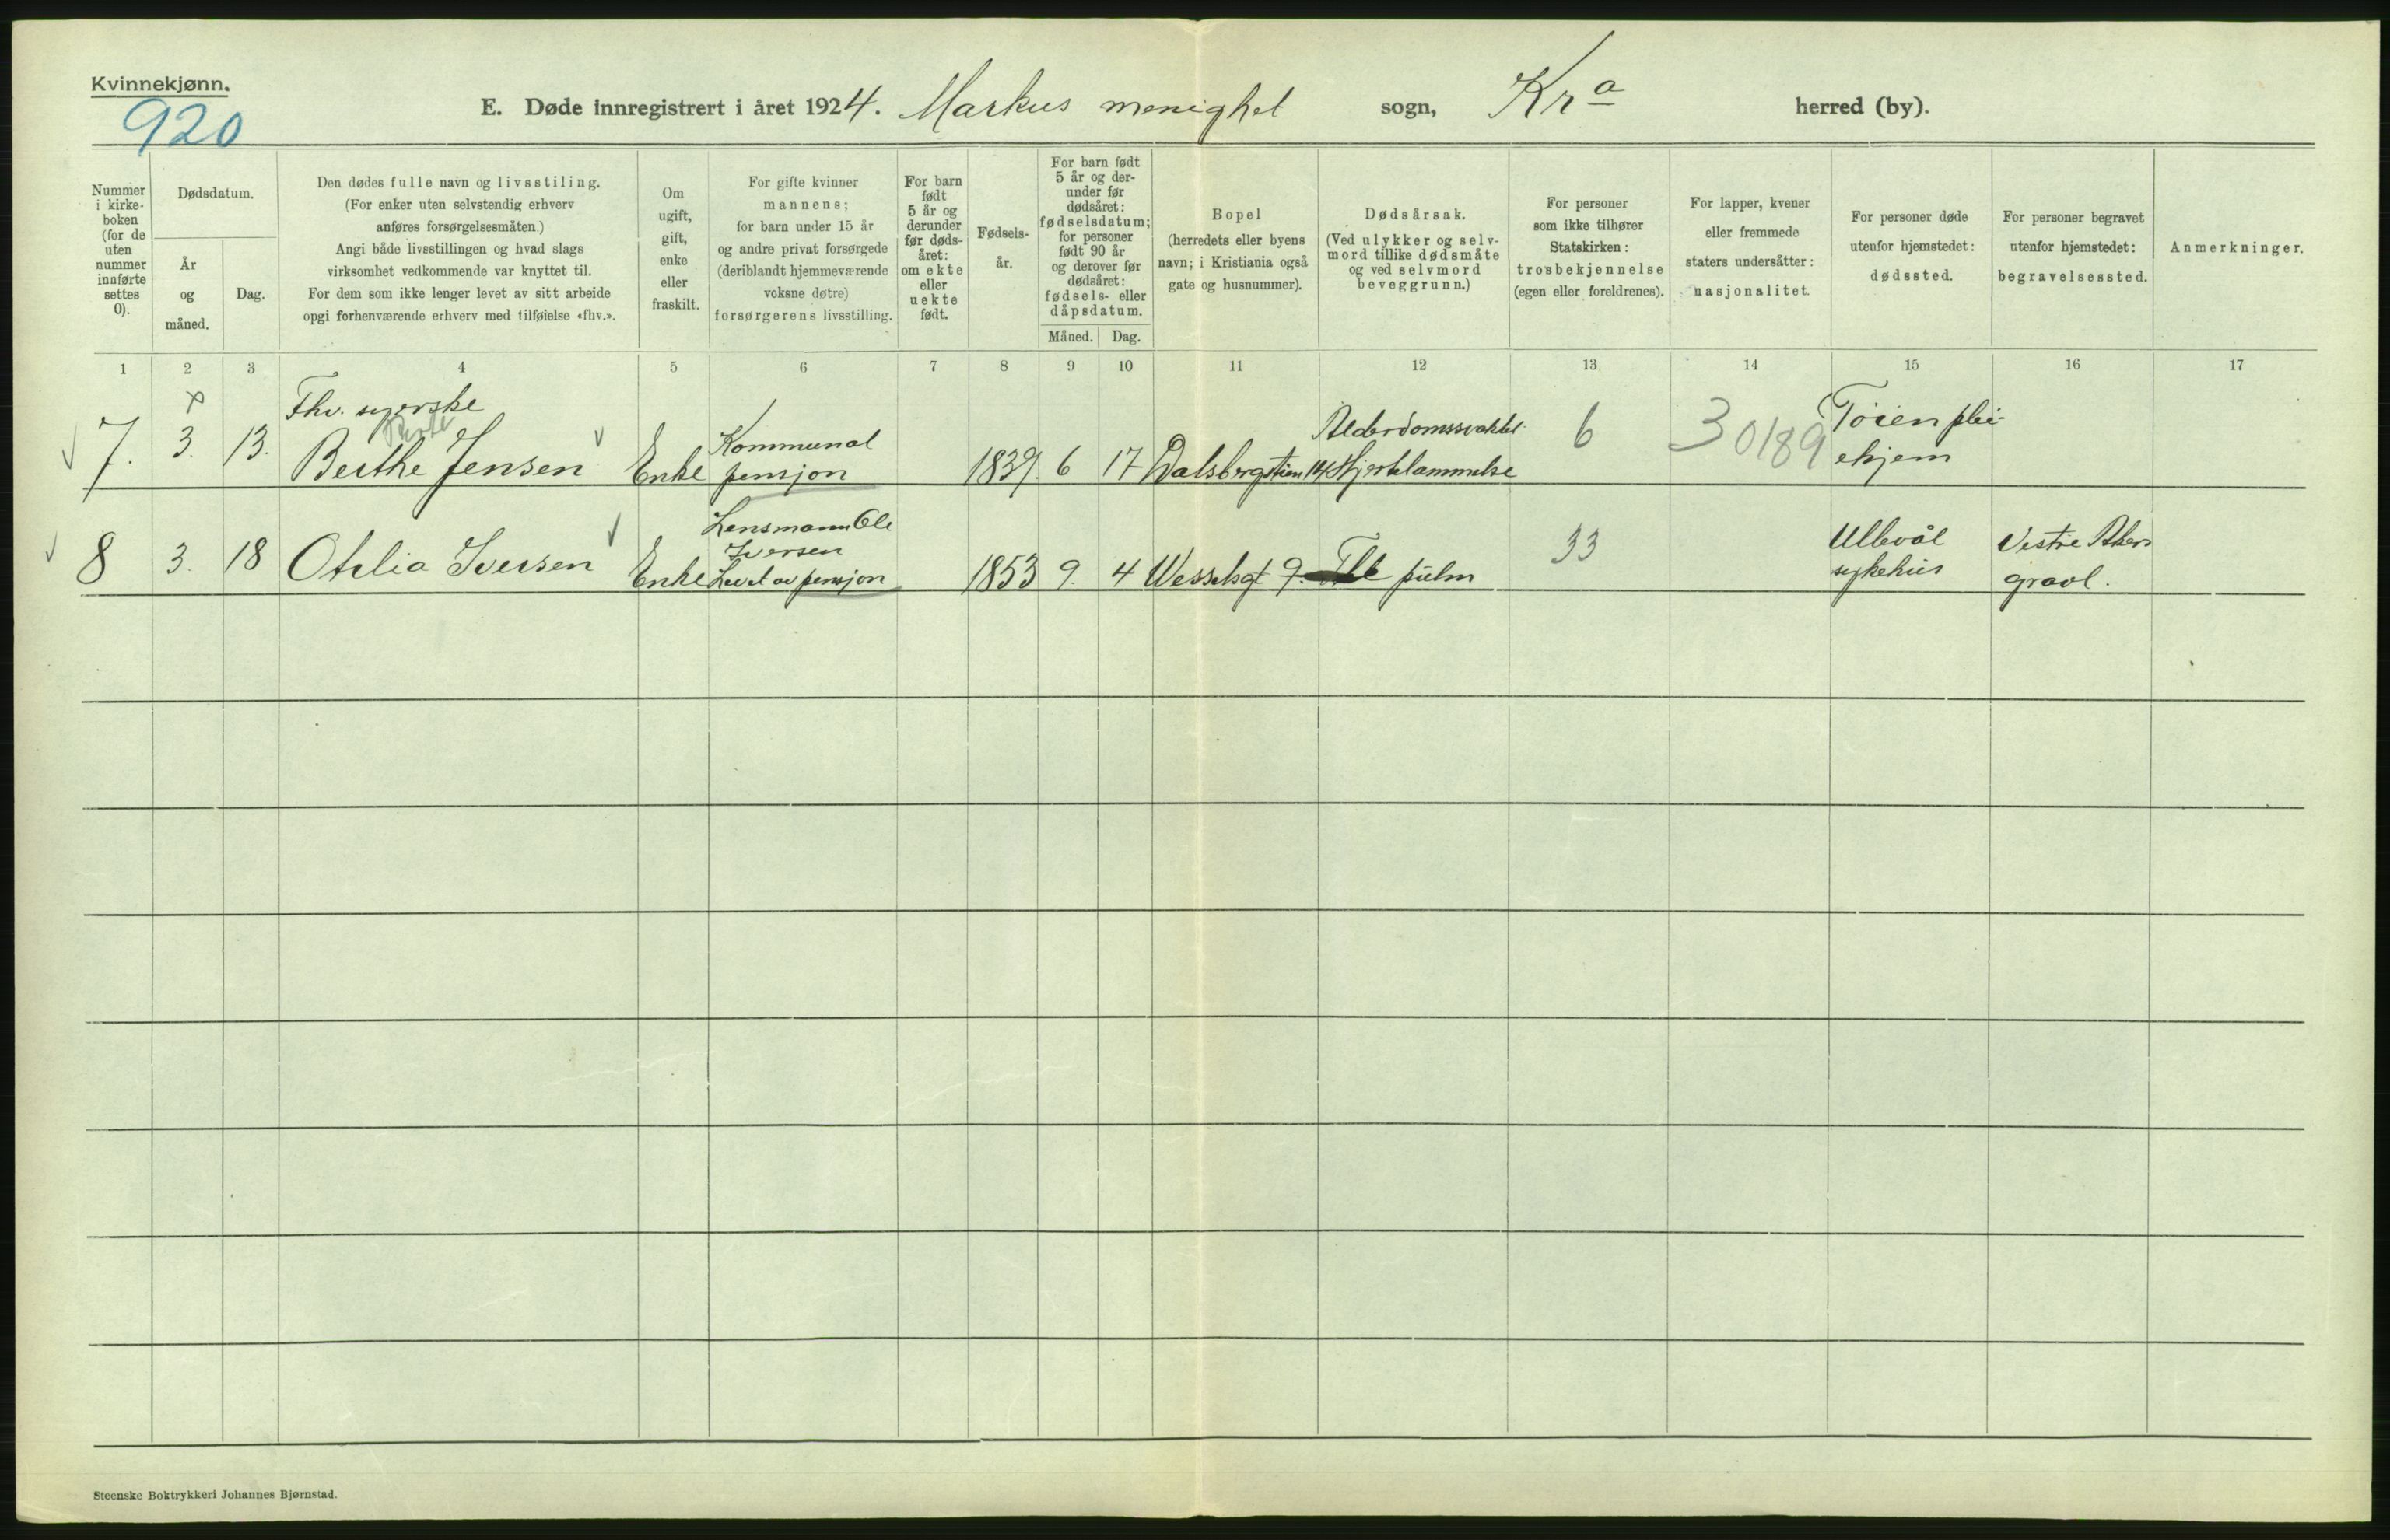 Kvinnekjønn.
920
E. Døde innregistrert i året 1924. Markus menighet sogn, Kra herred (by).
Nummer i kirke- boken (for de uten nummer innførte settes 0).
Dødsdatum.
År og måned.
Dag.
Den dødes fulle navn og livsstiling.
(For enker uten selvstendig erhverv
anføres forsørgelsesmåten.)
Angi både livsstillingen og hvad slags
virksomhet vedkommende var knyttet til.
For dem som ikke lenger levet av sitt arbeide
opgi forhenværende erhverv med tilføielse «fhv.».
Om
ugift,
gift,
enke
eller
fraskilt.
For gifte kvinner
mannens;
for barn under 15 år
og andre privat forsørgede
(deriblandt hjemmeværende
voksne døtre)
forsørgerens livsstilling.
For barn
født
5 år og
derunder
før døds-
året:
om ekte
eller
uekte
født.
Fødsels-
år.
For barn født
5 år og der-
under før
dødsåret:
fødselsdatum;
for personer
født 90 år
og derover før
dødsåret:
fødsels- eller
dåpsdatum.
Måned. Dag.
Bopel
(herredets eller byens
navn; i Kristiania også
gate og husnummer).
Dødsårsak.
(Ved ulykker og selv-
mord tillike dødsmåte
og ved selvmord
beveggrunn.)
For personer
som ikke tilhører
Statskirken:
trosbekjennelse
(egen eller foreldrenes).
For lapper, kvener
eller fremmede
staters undersåtter:
nasjonalitet.
For personer døde
utenfor hjemstedet:
dødssted.
For personer begravet
utenfor hjemstedet:
begravelsessted.
Anmerkninger.
1 2 3 4 5 6 7 8 9 10 11 12 13 14 15 16 17
Fhv. syerske
7. 3. 13. Berthe Jensen Enke Kommunal
pensjon 1839. 6 17 Dalsbergstien 14 Alderdomssvakhet
Hjertelammelse 6 30189 Tøienplei-
ehjem
8 3. 18 Otelia Iversen Enke Lensmann Ole
Iversen
Levet av pensjon 1853 9. 4 Wesselsgt 9. Tbc pulm 33 Ullevål
sykehus Vestre Akers
gravl.
Steenske Boktrykkeri Johannes Bjørnstad.